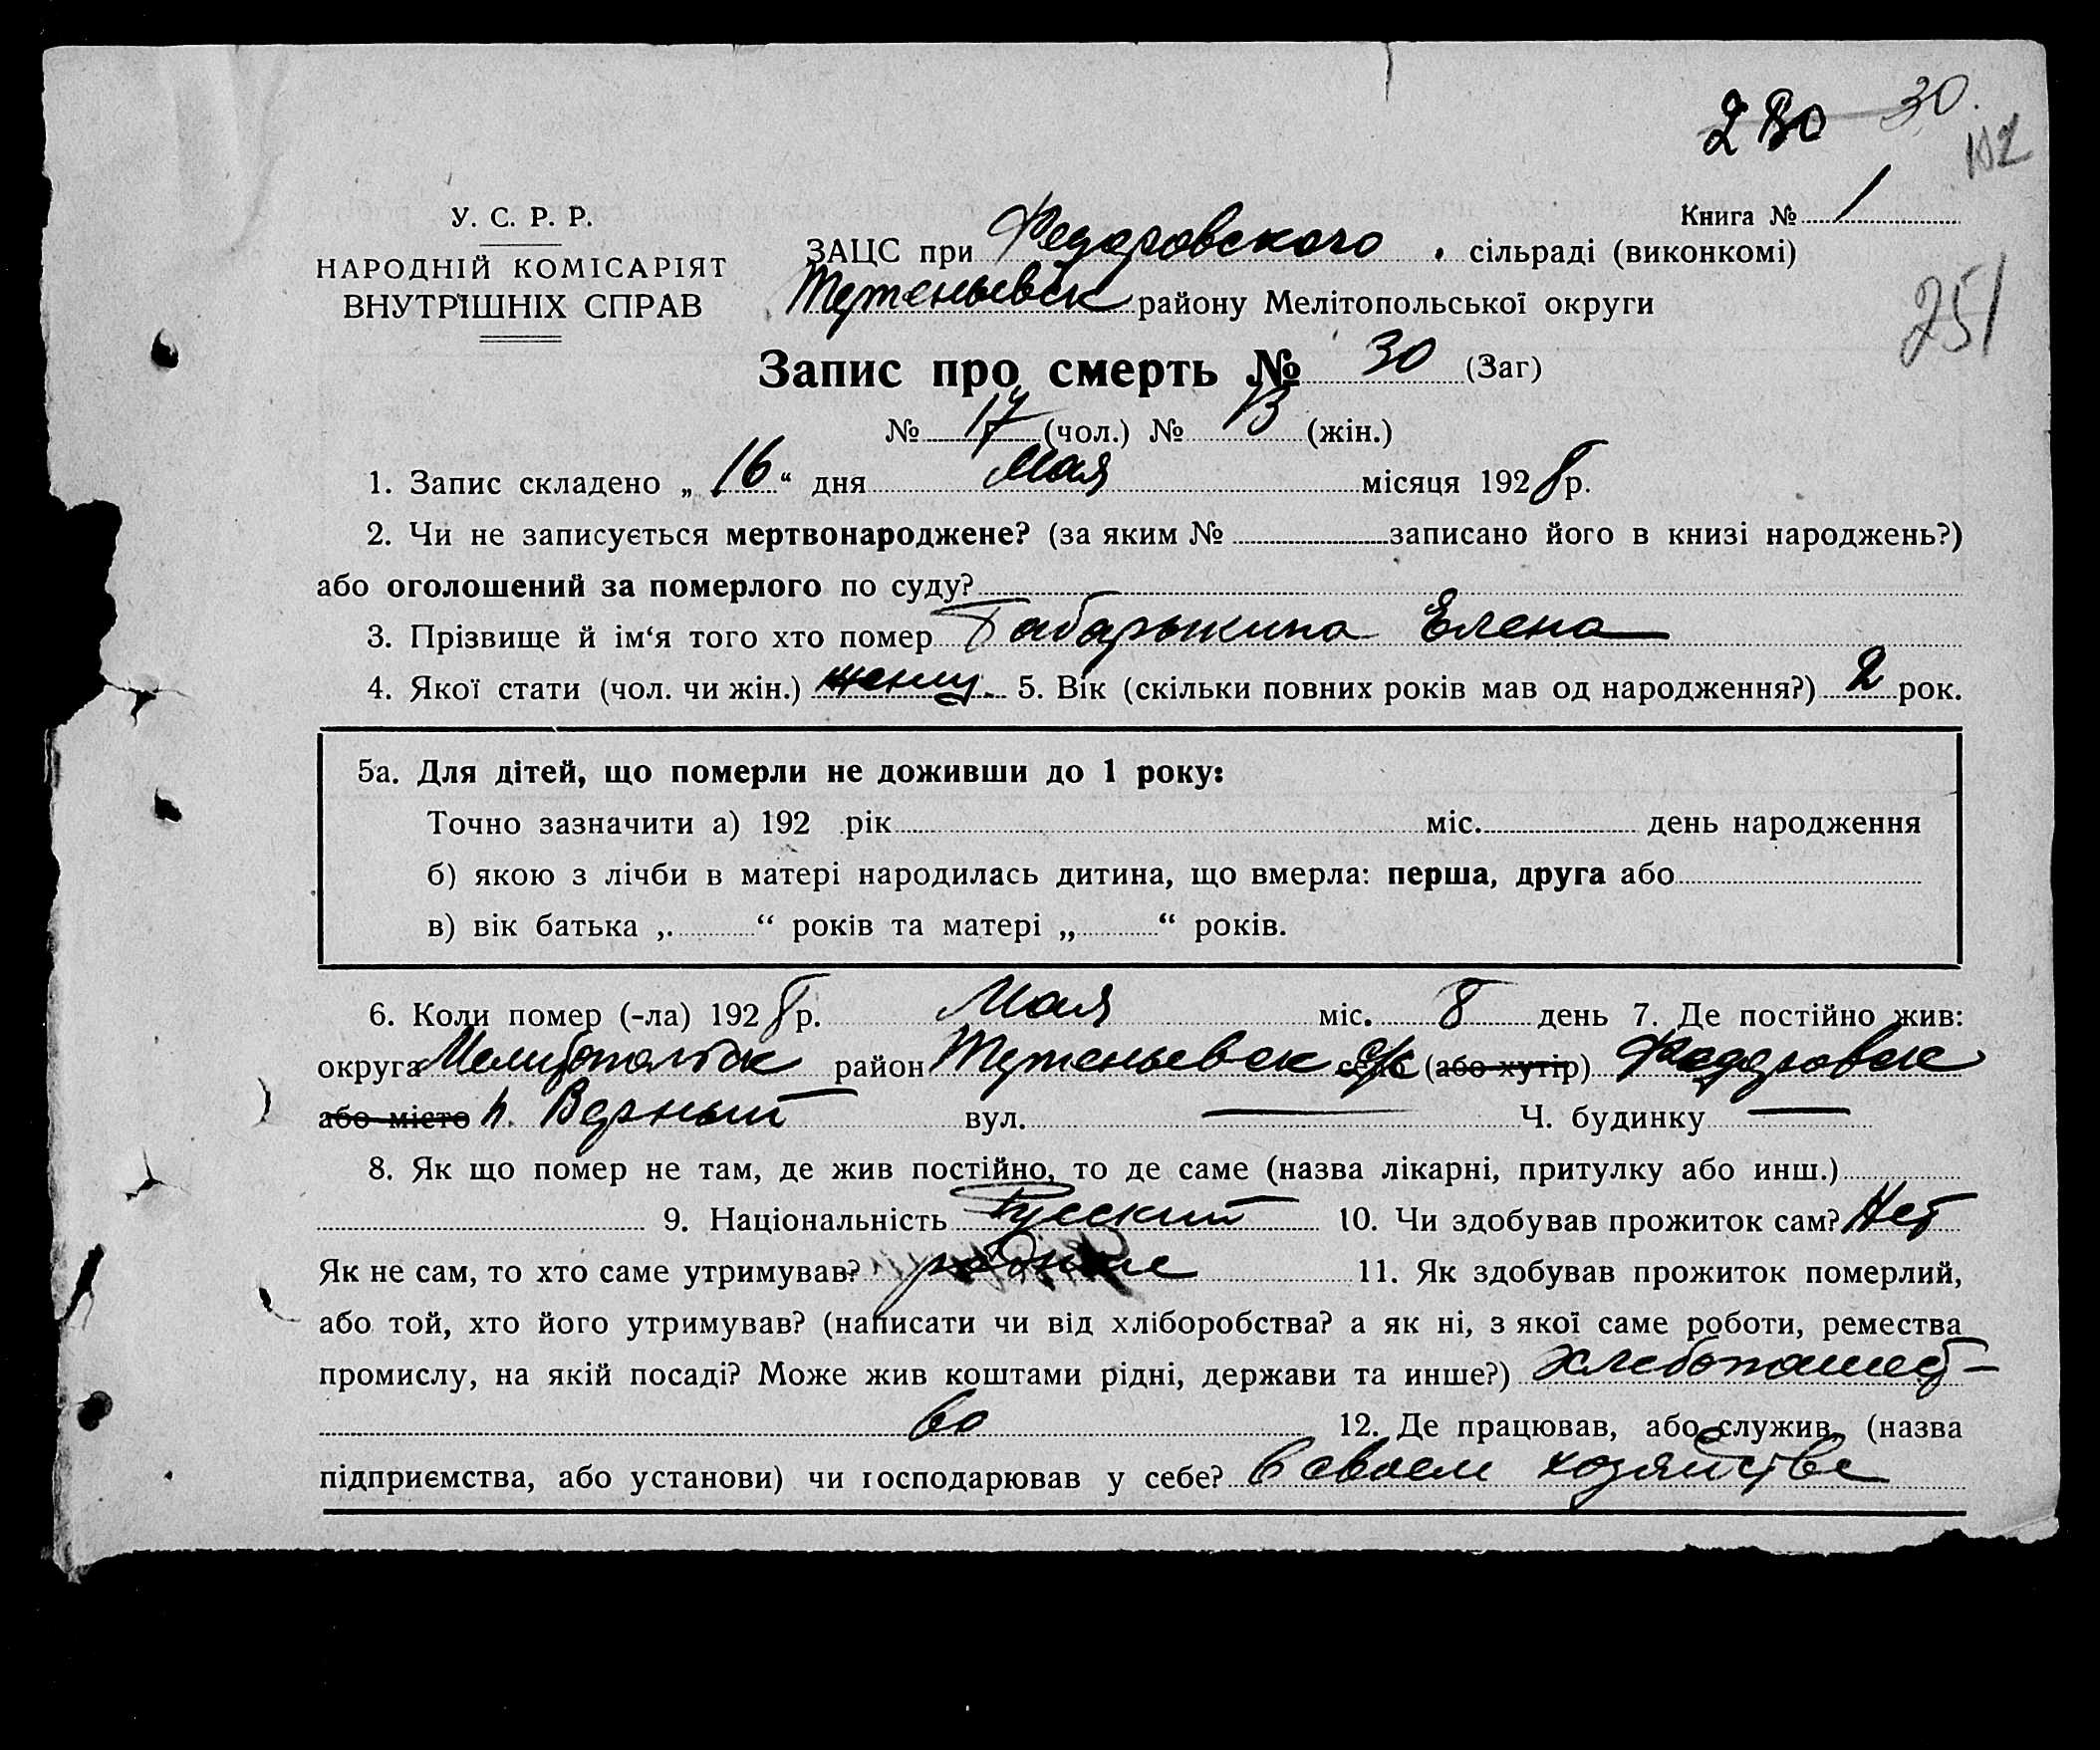 280 30.
102
У. С. Р. Р.
НАРОДНІЙ КОМІСАРІЯТ
ВНУТРІШНІХ СПРАВ
Книга № 1
ЗАЦС при Федоровского сільраді (виконкомі)
району Мелітопольської округи
251
Запис про смерть № 30 (Заг)
№ 17 (чол.) № 13 (жін.)
1. Запис складено „ 16 “ дня Мая місяця 1928 р.
2. Чи не записується мертвонароджене? (за яким № записано його в книзі народжень?)
або оголошений за померлого по суду?
3. Прізвище й ім‘я того хто помер Табарыкина Елена
4. Якої стати (чол. чи жін.) женщ. 5. Вік (скільки повних років мав од народження?) 2 рок.
5а. Для дітей, що померли не доживши до 1 року:
Точно зазначити а) 192 рік міс. день народження
б) якою з лічби в матері народилась дитина, що вмерла: перша, друга або
в) вік батька „ “ років та матері „ “ років.
6. Коли помер (-ла) 1928 р. Мая міс. 8 день 7. Де постійно жив:
округа Мелитопольск район село с/с (або хутір) Федоровск
або місто п. Верный вул. — Ч. будинку —
8. Як що помер не там, де жив постійно, то де саме (назва лікарні, притулку або инш.)
9. Національність Русский 10. Чи здобував прожиток сам? Нет
Як не сам, то хто саме утримував? 11. Як здобував прожиток померлий,
або той, хто його утримував? (написати чи від хліборобства? а як ні, з якої саме роботи, ремества
промислу, на якій посаді? Може жив коштами рідні, держави та инше?) хлебопашест-
во 12. Де працював, або служив, (назва
підприємства, або установи) чи господарював у себе? в своем хозяйстве